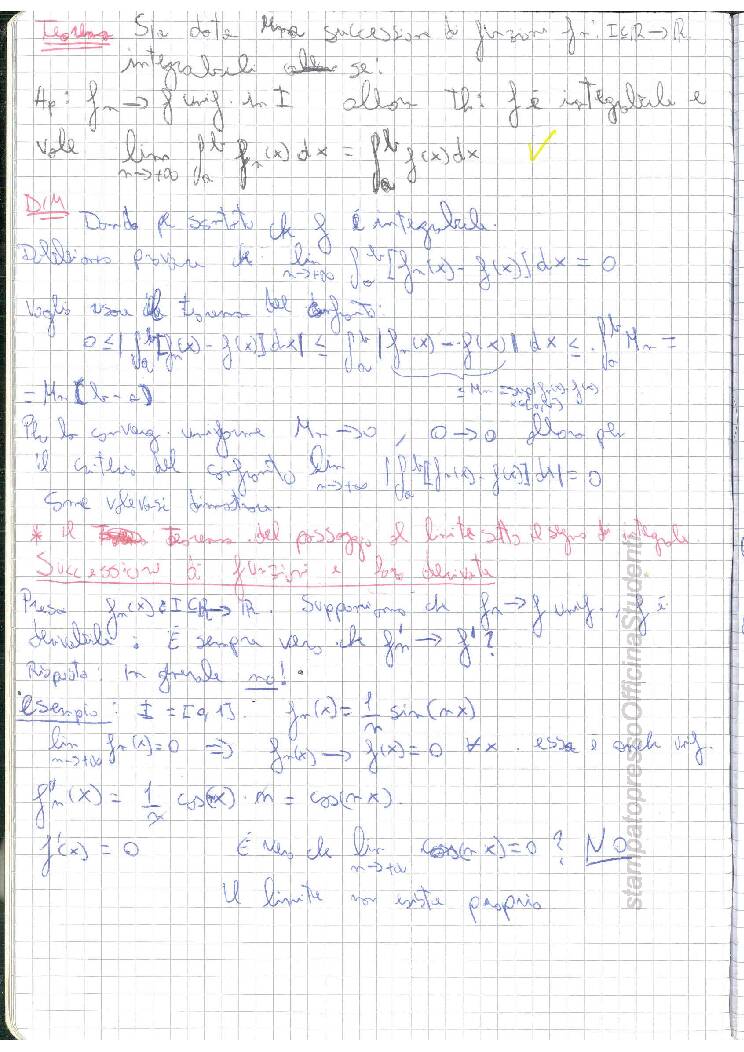 Teorema Sia data una successione di funzioni fn: I⊆R→R
integrabili se:
Hp: fn → f unif. in I allora Th: f è integrabile e
vale lim n→+∞ ∫_a^b fn(x)dx = ∫_a^b f(x)dx ✓
DIM Dando per scontato che f è integrabile.
Dobbiamo provare che lim n→+∞ ∫_a^b [fn(x) - f(x)]dx = 0
Voglio usare il teorema del confronto:
0 ≤ |∫_a^b [fn(x) - f(x)]dx| ≤ ∫_a^b |fn(x) - f(x)| dx ≤ ∫_a^b Mn =
≤ Mn = sup|fn(x)-f(x)|
= Mn (b-a)
Per la converg. uniforme Mn → 0, 0 → 0 allora per
il criterio del confronto lim n→+∞ |∫_a^b [fn(x) - f(x)]dx| = 0
come volevasi dimostrare
* il Teorema del passaggio al limite sotto il segno di integrale
Successioni di funzioni e loro derivata
Presa fn(x): I⊆R→R. Supponiamo che fn → f unif., f è
derivabile: È sempre vero che f'n → f'?
Risposta: In generale no!
Esempio: I = [0,1]. fn(x) = 1/n sin(nx)
lim n→+∞ fn(x) = 0 ⇒ fn(x) → f(x) = 0 ∀x. essa è anche unif.
f'n(x) = 1/n cos(nx)·n = cos(nx).
f'(x) = 0 È vero che lim n→+∞ cos(nx) = 0? NO
Il limite non esiste proprio
stampatopressoOfficinaStudenti